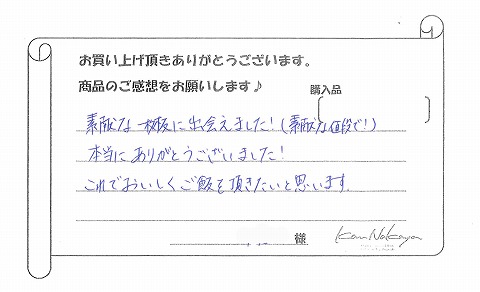 お買い上げ頂きありがとうございます。
商品のご感想をお願いします♪
購入品
素敵な一枚板に出会えました!(素敵な値段で!)
本当にありがとうございました!
これでおいしくご飯を頂きたいと思います.
様